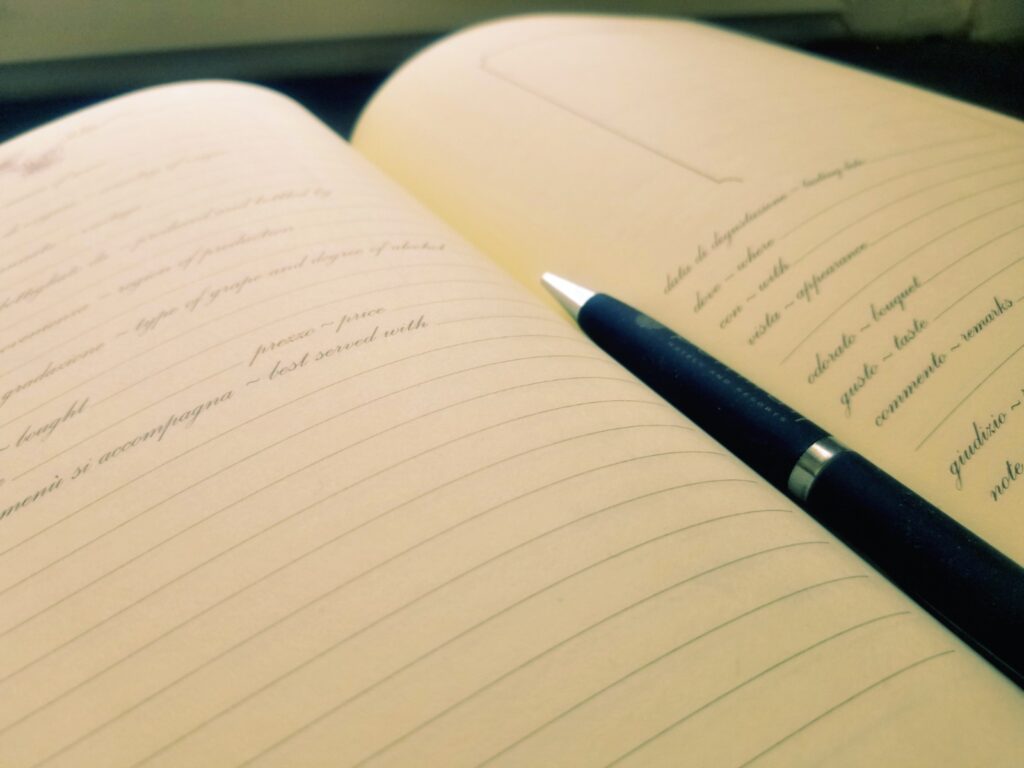 produced and bottled by
~ region of production
gradazione ~ type of grape and degree of alcohol
~ bought
prezzo ~ price
si accompagna ~ best served with
data di degustazione ~ tasting date
dove ~ where
con ~ with
vista ~ appearance
odorato ~ bouquet
gusto ~ taste
commento ~ remarks
giudizio ~
note
HOTELS AND RESORTS